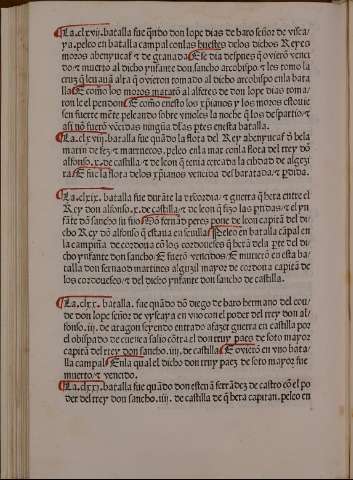 ¶La.clxvij. batalla fue q̃ndo don lope dias de haro señor de viscay
ya, peleo en batalla campal con las huestes delos dichos Reyes
moros abenyucaf ⁊ de granada ¶E ese dia despues q̃ ouierõ venci
do ⁊ muerto al dicho ynfante don sancho arcobispo ⁊ les tomo la
cruz q̃ leuauã al ra q̃ ouieron tomado al dicho arcobispo en la bata
lla ¶E como los moros matarõ al alferes de don lope dias toma/
ron le el pendon ¶E como enesto los xp̃ianos y los moros estouie
sen fuerte mẽte peleando sobre vino les la noche q̃ los despartio ⁊
asi nõ fuerõ vẽcidas ninguã dlas p̃tes enesta batalla.
¶La.clxviij. batalla fue quãdo la flota del Rey abenyucaf õ bela
marin de fez ⁊ marruecos, peleo enla mar con la flota del rey dõ
alfonso.x. de castilla ⁊ de leon q̃ tenia cercada la cibdad de algezi
ra ¶E fue la flota delos xp̃ianos vencida desbaratada ⁊ p̃dida.
¶La.clxix. batalla fue durãte la discordia ⁊ guerra q̃ hera entre el
Rey don alfonso.x. de castilla ⁊ de leon q̃ fizo las p̃tidas ⁊ el yn
fãte dõ sancho su fijo ¶Dõ ferrnãd peres põçe de leon capitã del di
cho Rey dõ alfonso q̃ estaua en seuilla ¶Peleo en batalla cãpal en
la campiña de cordoua cõ los cordoueses q̃ herã dela p̃te del di
cho ynfante don sancho ¶E fuerõ vencidos ¶E murierõ en esta ba
talla don fernand martines alguazil mayor de cordoua capitã de
los cordoueses ⁊ del dicho ynfante don sancho de castilla.
¶La.clxx. batalla. fue quãdo dõ diego de haro hermano del con/
de don lope señor de vyscaya en vno con el poder del rrey don al/
fonso.iij. de aragon seyendo entrado a fazer guerra en castilla por
el obispado de cuenca salio cõtra el don rruy paez de soto mayor
capitã del rrey don sancho.iiij. de castilla ¶E ouierõ en vno bata/
lla campal ¶En la qual el dicho don rruy paez de soto mayor fue
muerto/ ⁊ vencido.
¶La.clxxj. batalla fue quãdo don esteuã ferrãdez de castro cõ el po
der del rrey don sancho.iiij. de castilla de q̃ hera capitan. peleo en